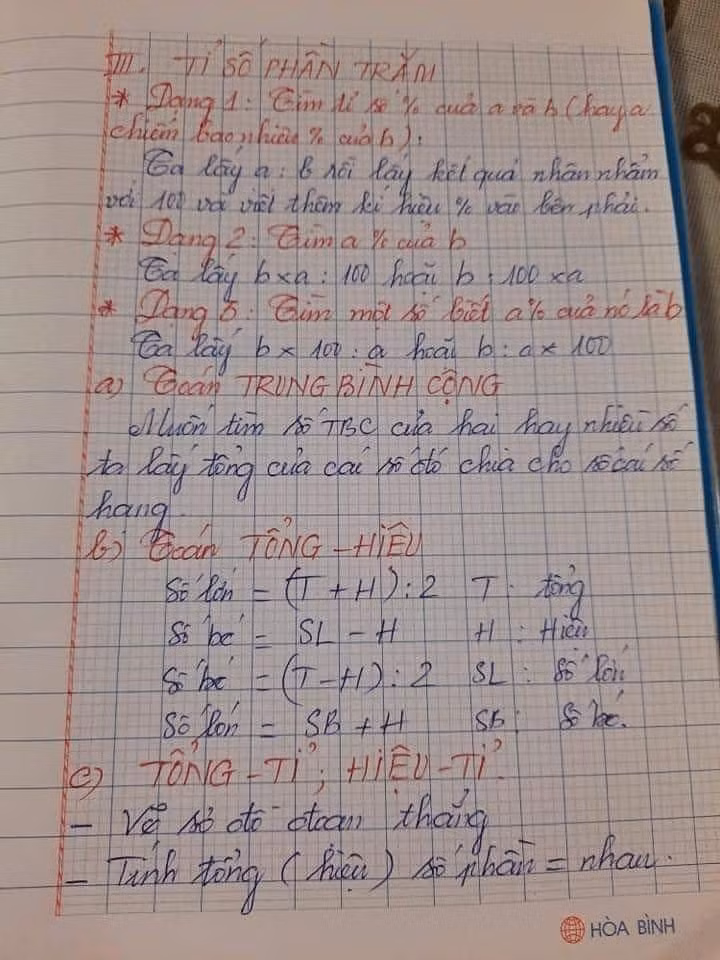 III. TỈ SỐ PHẦN TRĂM
* Dạng 1: Tìm tỉ số % của a và b (hay a
chiếm bao nhiêu % của b):
Ta lấy a : b rồi lấy kết quả nhân nhẩm
với 100 và viết thêm kí hiệu % vào bên phải.
* Dạng 2: Tìm a % của b
Ta lấy b x a : 100 hoặc b : 100 x a
* Dạng 3: Tìm một số biết a% của nó là b
Ta lấy b x 100 : a hoặc b : a x 100
a) Toán TRUNG BÌNH CỘNG
Muốn tìm số TBC của hai hay nhiều số
ta lấy tổng của các số đó chia cho số các số
hạng.
b) Toán TỔNG - HIỆU
Số lớn = (T + H) : 2 T : tổng
Số bé = SL - H H : Hiệu
Số bé = (T - H) : 2 SL : Số lớn
Số lớn = SB + H SB : Số bé.
c) TỔNG - TỈ ; HIỆU - TỈ.
- Vẽ sơ đồ đoạn thẳng
- Tính tổng (hiệu) số phần = nhau.
HÒA BÌNH